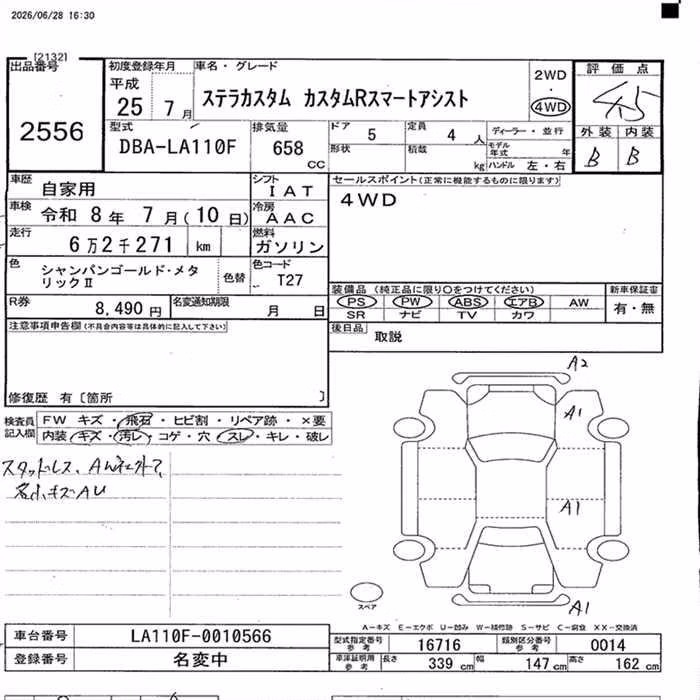 2026/06/28 16:30
[2132]
出品番号 2556
初度登録年月 平成 25 7月
車名・グレード
ステラカスタム カスタムRスマートアシスト
2WD ・ 4WD
評価点 4.5
外装 内装
B B
型式 DBA-LA110F
排気量 658 CC
ドア 5 定員 4 人 ディーラー・並行
形状 積載 kg モデル年式 年
ハンドル 左・右
車歴 自家用
シフト IAT
車検 令和 8年 7月(10日)
冷房 AAC
走行 6万2千271 km
燃料 ガソリン
色 シャンパンゴールド・メタリックⅡ 色替
色コード T27
R券 8,490円
名変通知期限 月 日
セールスポイント(正常に機能するものに限ります)
4WD
装備品 (純正品に限り○をつけてください)
PS PW ABS エアB AW
SR ナビ TV カワ
新車保証書
有・無
後日品 取説
注意事項申告欄(不具合内容等は具体的に記入して下さい)
修復歴 有〔箇所 〕
検査員記入欄
FW キズ・飛石・ヒビ割・リペア跡・×要
内装 キズ・汚レ・コゲ・穴・スレ・キレ・破レ
スタッドレス、AW
小キズAU
A2
A1
A1
A1
スペア
A−キズ E−エクボ U−凹み W−補修跡 S−サビ C−腐食 XX−交換済
車台番号 LA110F-0010566
登録番号 名変中
型式指定番号 参考 16716
類別区分番号 参考 0014
車庫証明用 参考 長さ 339 cm 幅 147 cm 高さ 162 cm